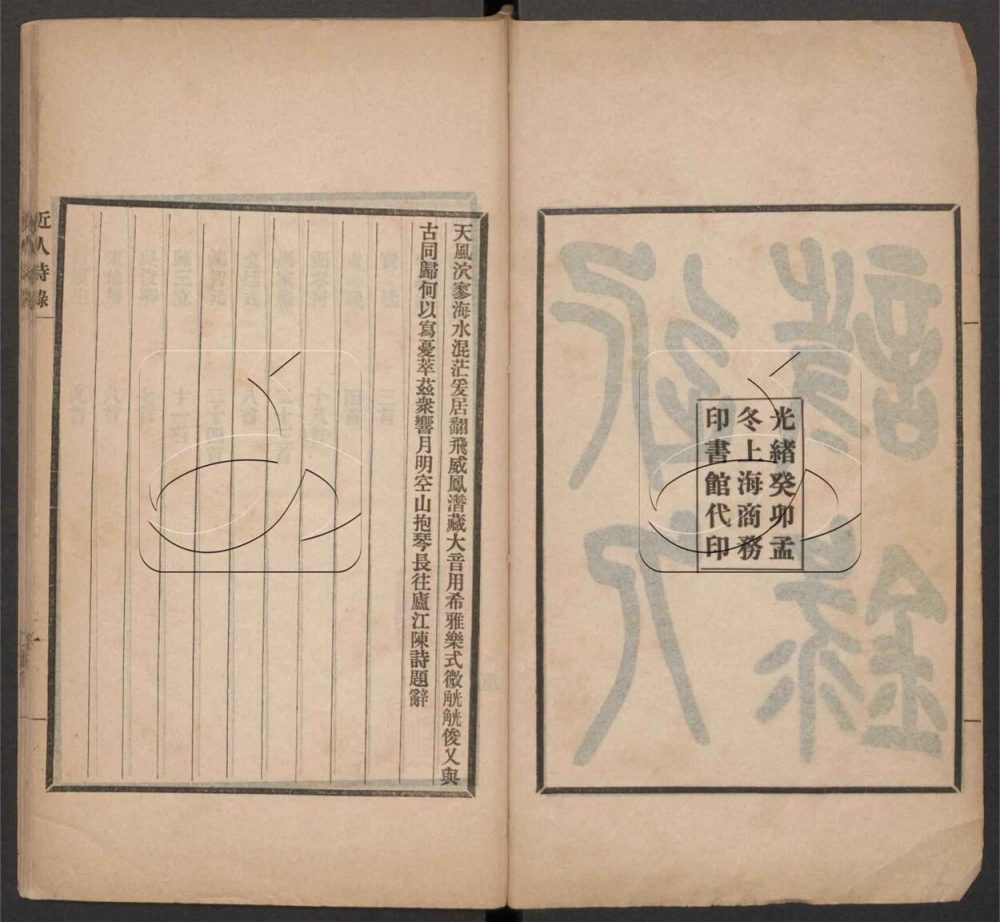 光緒癸卯孟
冬上海商務
印書館代印
天風泬寥海水混茫爰居翻飛威鳳潛藏大音用希雅樂式微觥觥俊乂與
古同歸何以寫憂萃茲衆響月明空山抱琴長往廬江陳詩題辭
近人詩錄